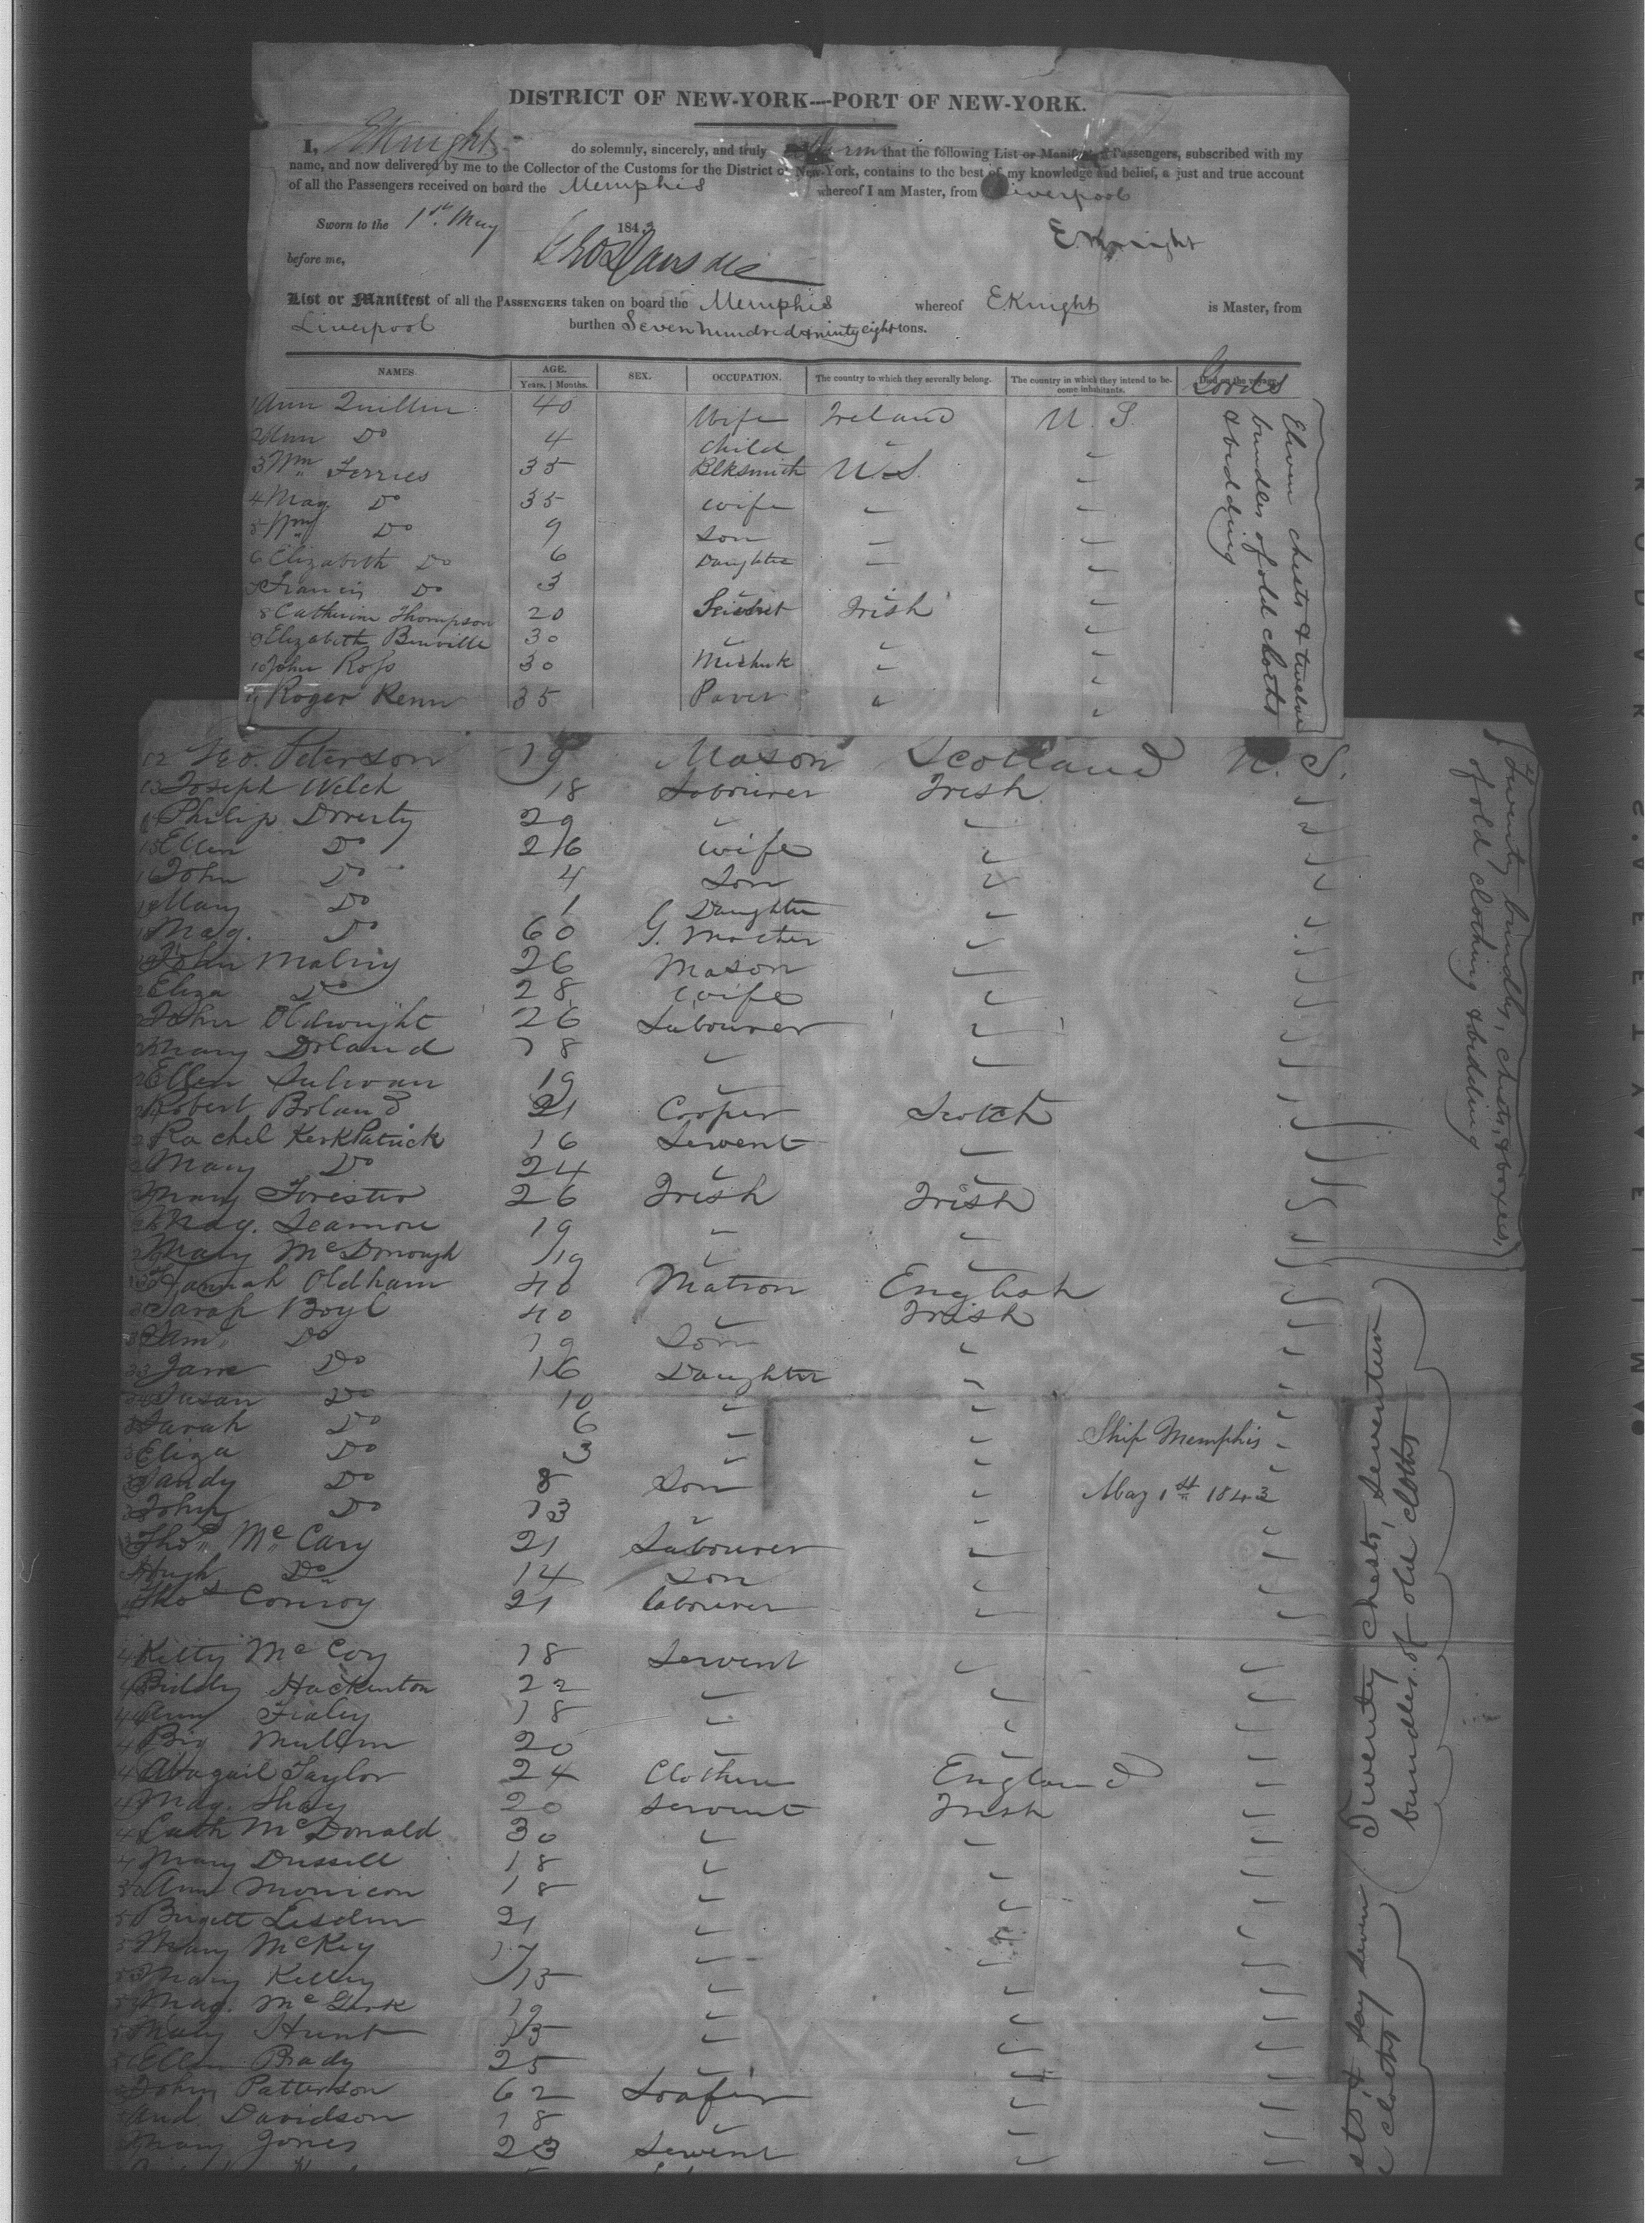 DISTRICT OF NEW-YORK---PORT OF NEW-YORK.
I, E Knight do solemnly, sincerely, and truly that the following List or Manifest of Passengers, subscribed with my
name, and now delivered by me to the Collector of the Customs for the District of New-York, contains to the best of my knowledge and belief, a just and true account
of all the Passengers received on board the Memphis whereof I am Master, from Liverpool
Sworn to the 1st May 1843
E. Knight
before me,
List or Manifest of all the PASSENGERS taken on board the Memphis whereof E Knight is Master, from
Liverpool burthen Seven hundred & ninty eight tons.
NAMES AGE. Years. | Months. SEX. OCCUPATION. The country to which they severally belong. The country in which they intend to become inhabitants. Goods
1 Ann Quillin 40 Wife Ireland U. S.
2 Ann Do 4 Child "
3 Wm Ferries 35 Blksmith U.S. "
4 Mag. Do 35 Wife " "
5 Wm Do 9 Son " "
6 Elizabeth Do 6 Daughter " "
7 Francis Do 3 " "
8 Catherine Thompson 20 Irish "
9 Elizabeth 30 " " "
10 John Ross 30 " "
11 Roger Renn 35 Paver " "
Eleven chests & twelve
bundles of old cloths
& bedding
12 Geo. Peterson 19 Mason Scotland U. S.
13 Joseph Welch 18 Labourer Irish "
Philip Doverty 29 " " "
15 Ellen Do 26 Wife " "
John Do 4 Son " "
Mary Do 1 Daughter " "
Mag. Do 60 G. Mother " "
John Malviy 26 Mason " "
Eliza Do 28 Wife " "
John Oldwright 26 Labourer " "
Mary Doland 18 " " "
Ellen Sulivan 19 " " "
Robert Boland 21 Cooper Scotch "
Rachel KerkPatrick 16 Servent " "
Mary Do 24 " " "
Mary Forester 26 Irish Irish "
Mag. Seamore 19 " " "
Mary McDonough 19 " " "
Hannah Oldham 40 Matron English "
Sarah Boyl 40 " Irish "
Sam Do 19 Son " "
33 Jane Do 16 Daughter " "
34 Susan Do 10 " " "
Sarah Do 6 " " "
Eliza Do 3 " " "
Sandy Do 8 Son " "
John Do 13 " " "
Thos McCary 21 Labourer " "
Hugh Do 14 Son " "
Thos Conroy 21 Labourer " "
Kitty McCoy 18 Servent " "
Biddy Hackinton 22 " " "
Ann Fialey 18 " " "
Big Mullin 20 " " "
Abagail Taylor 24 Clothier England "
Mag. Shay 20 Servent Irish "
Cath McDonald 30 " " "
Mary Dussell 18 " " "
50 Ann Monicon 18 " " "
Brigett Lesdin 21 " " "
Mary McKey 17 " " "
53 Mary Kelley 15 " " "
Mag. McGurk 19 " " "
Mary Hunt 15 " " "
Ellen Brady 25 " " "
John Patterson 62 Loafer " "
And. Davidson 18 " " "
Mary Jones 23 Servent " "
Twenty bundles, chests, & boxes,
of old clothing & bedding
Ship Memphis
May 1st 1843
Twenty chests, seventeen
bundles of old cloths
& say seven
cloths